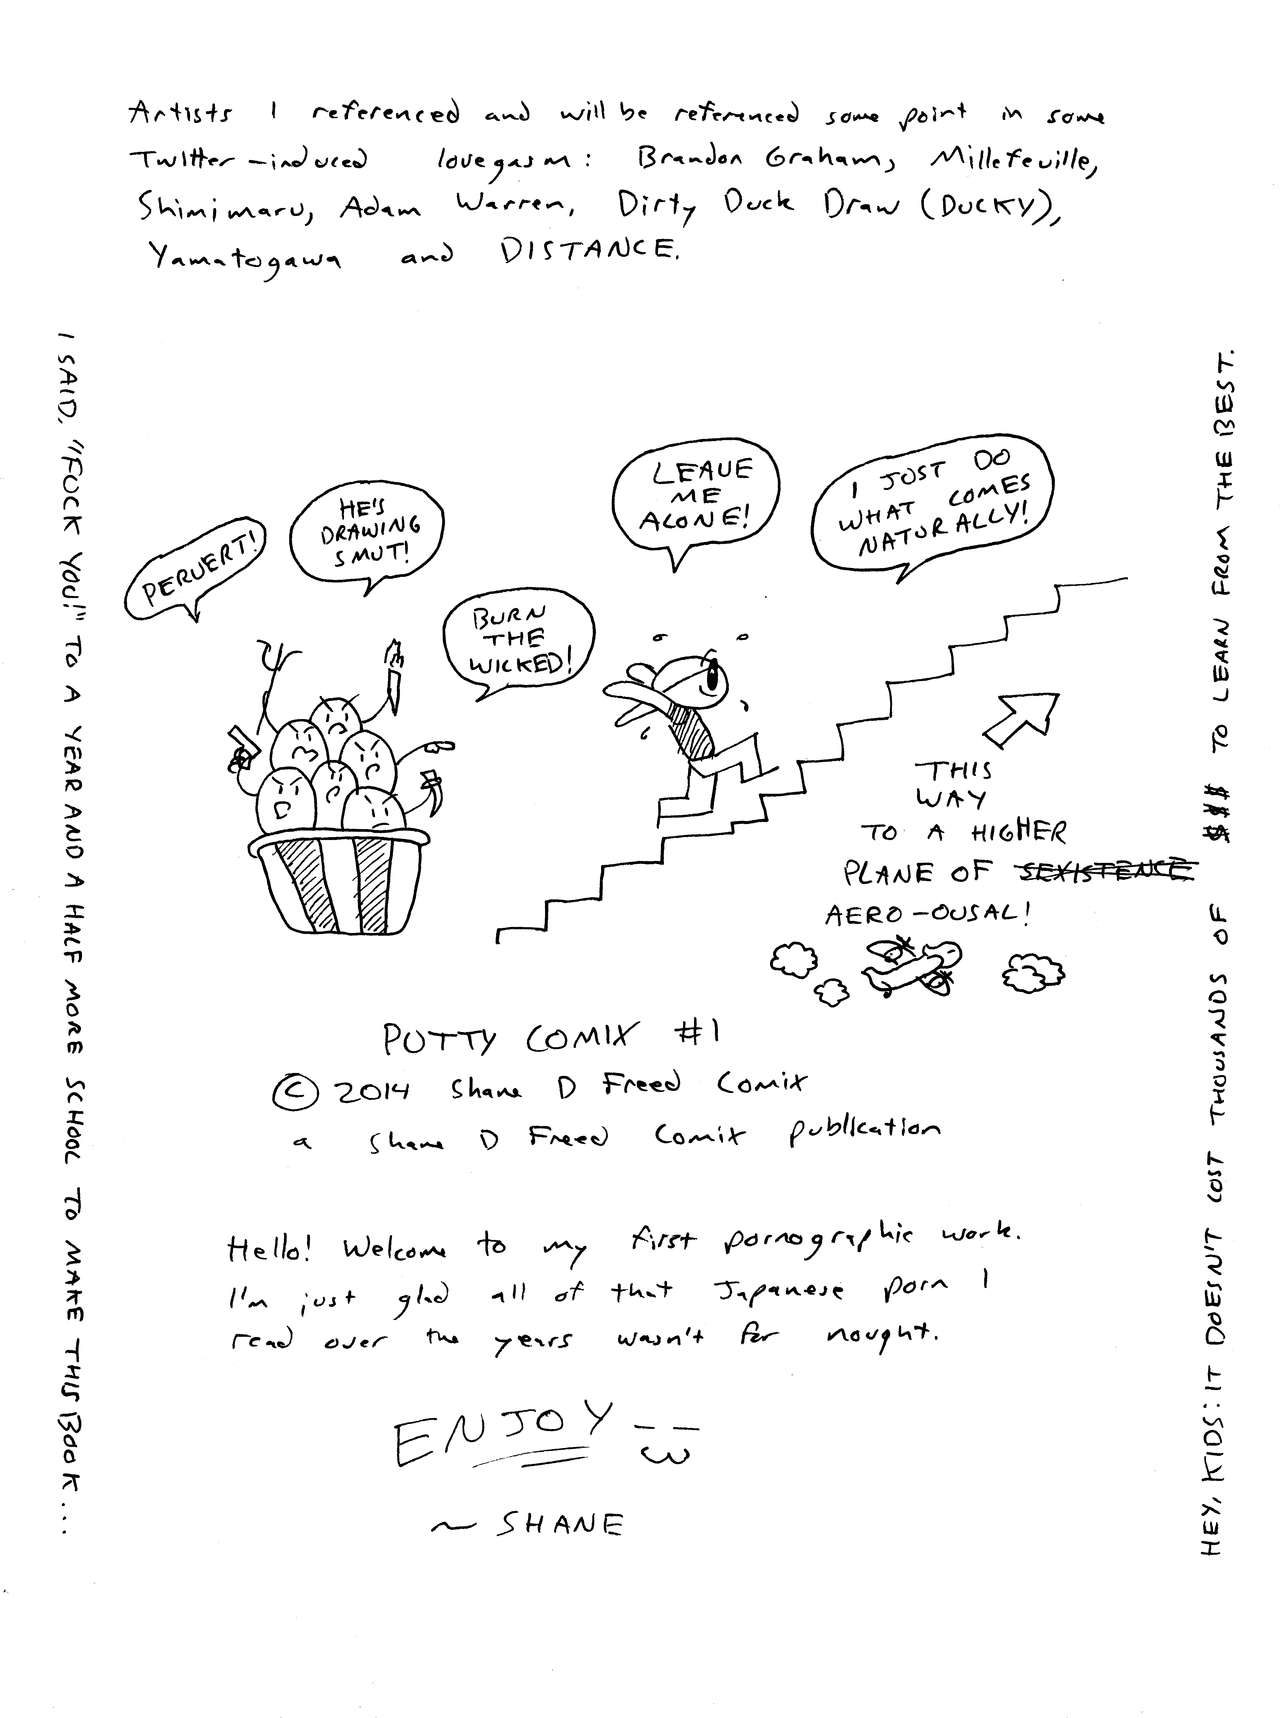 Artists I referenced and will be referenced some point in some
Twitter-induced lovegasm: Brandon Graham, Millefeuille,
Shimimaru, Adam Warren, Dirty Duck Draw (DUCKY),
Yamatogawa and DISTANCE.
I SAID, "FUCK YOU!" TO A YEAR AND A HALF MORE SCHOOL TO MAKE THIS BOOK...
PERVERT!
HE'S
DRAWING
SMUT!
BURN
THE
WICKED!
LEAVE
ME
ALONE!
I JUST DO
WHAT COMES
NATURALLY!
THIS
WAY
TO A HIGHER
PLANE OF SEXISTENCE
AERO-OUSAL!
PUTTY COMIX #1
© 2014 Shane D Freed Comix
a Shane D Freed Comix publication
Hello! Welcome to my first pornographic work.
I'm just glad all of that Japanese porn I
read over the years wasn't for nought.
ENJOY
~ SHANE
HEY, KIDS: IT DOESN'T COST THOUSANDS OF $$$ TO LEARN FROM THE BEST.